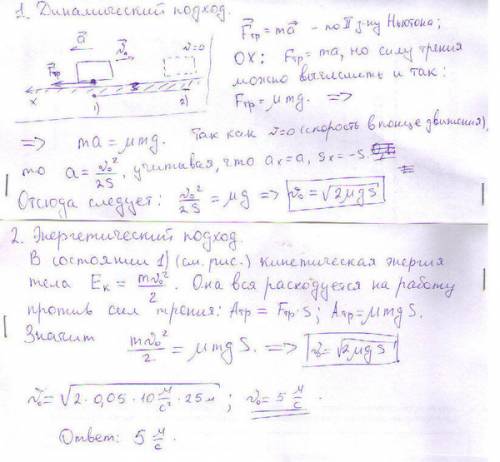 1. Динамический подход.
F⃗тр = ma⃗ - по II з-ну Ньютона;
OX: Fтр = ma, но силу трения
можно вычислить и так:
Fтр = μmg. =>
a⃗ v⃗₀ v=0
F⃗тр S
x 1) 2)
=> ma = μmg. Так как v=0 (скорость в конце движения),
то a = v₀²/2S, учитывая, что aₓ=a, Sₓ=-S.
Отсюда следует: v₀²/2S = μg => v₀ = √2μgS
2. Энергетический подход.
В состоянии 1) (см. рис.) кинетическая энергия
тела Eк = mv₀²/2. Она вся расходуется на работу
против сил трения: Aтр = Fтр·S; Aтр = μmgS.
Значит mv₀²/2 = μmgS. => v₀ = √2μgS
v₀ = √2·0,05·10 м/с²·25м ; v₀ = 5 м/с.
Ответ: 5 м/с.